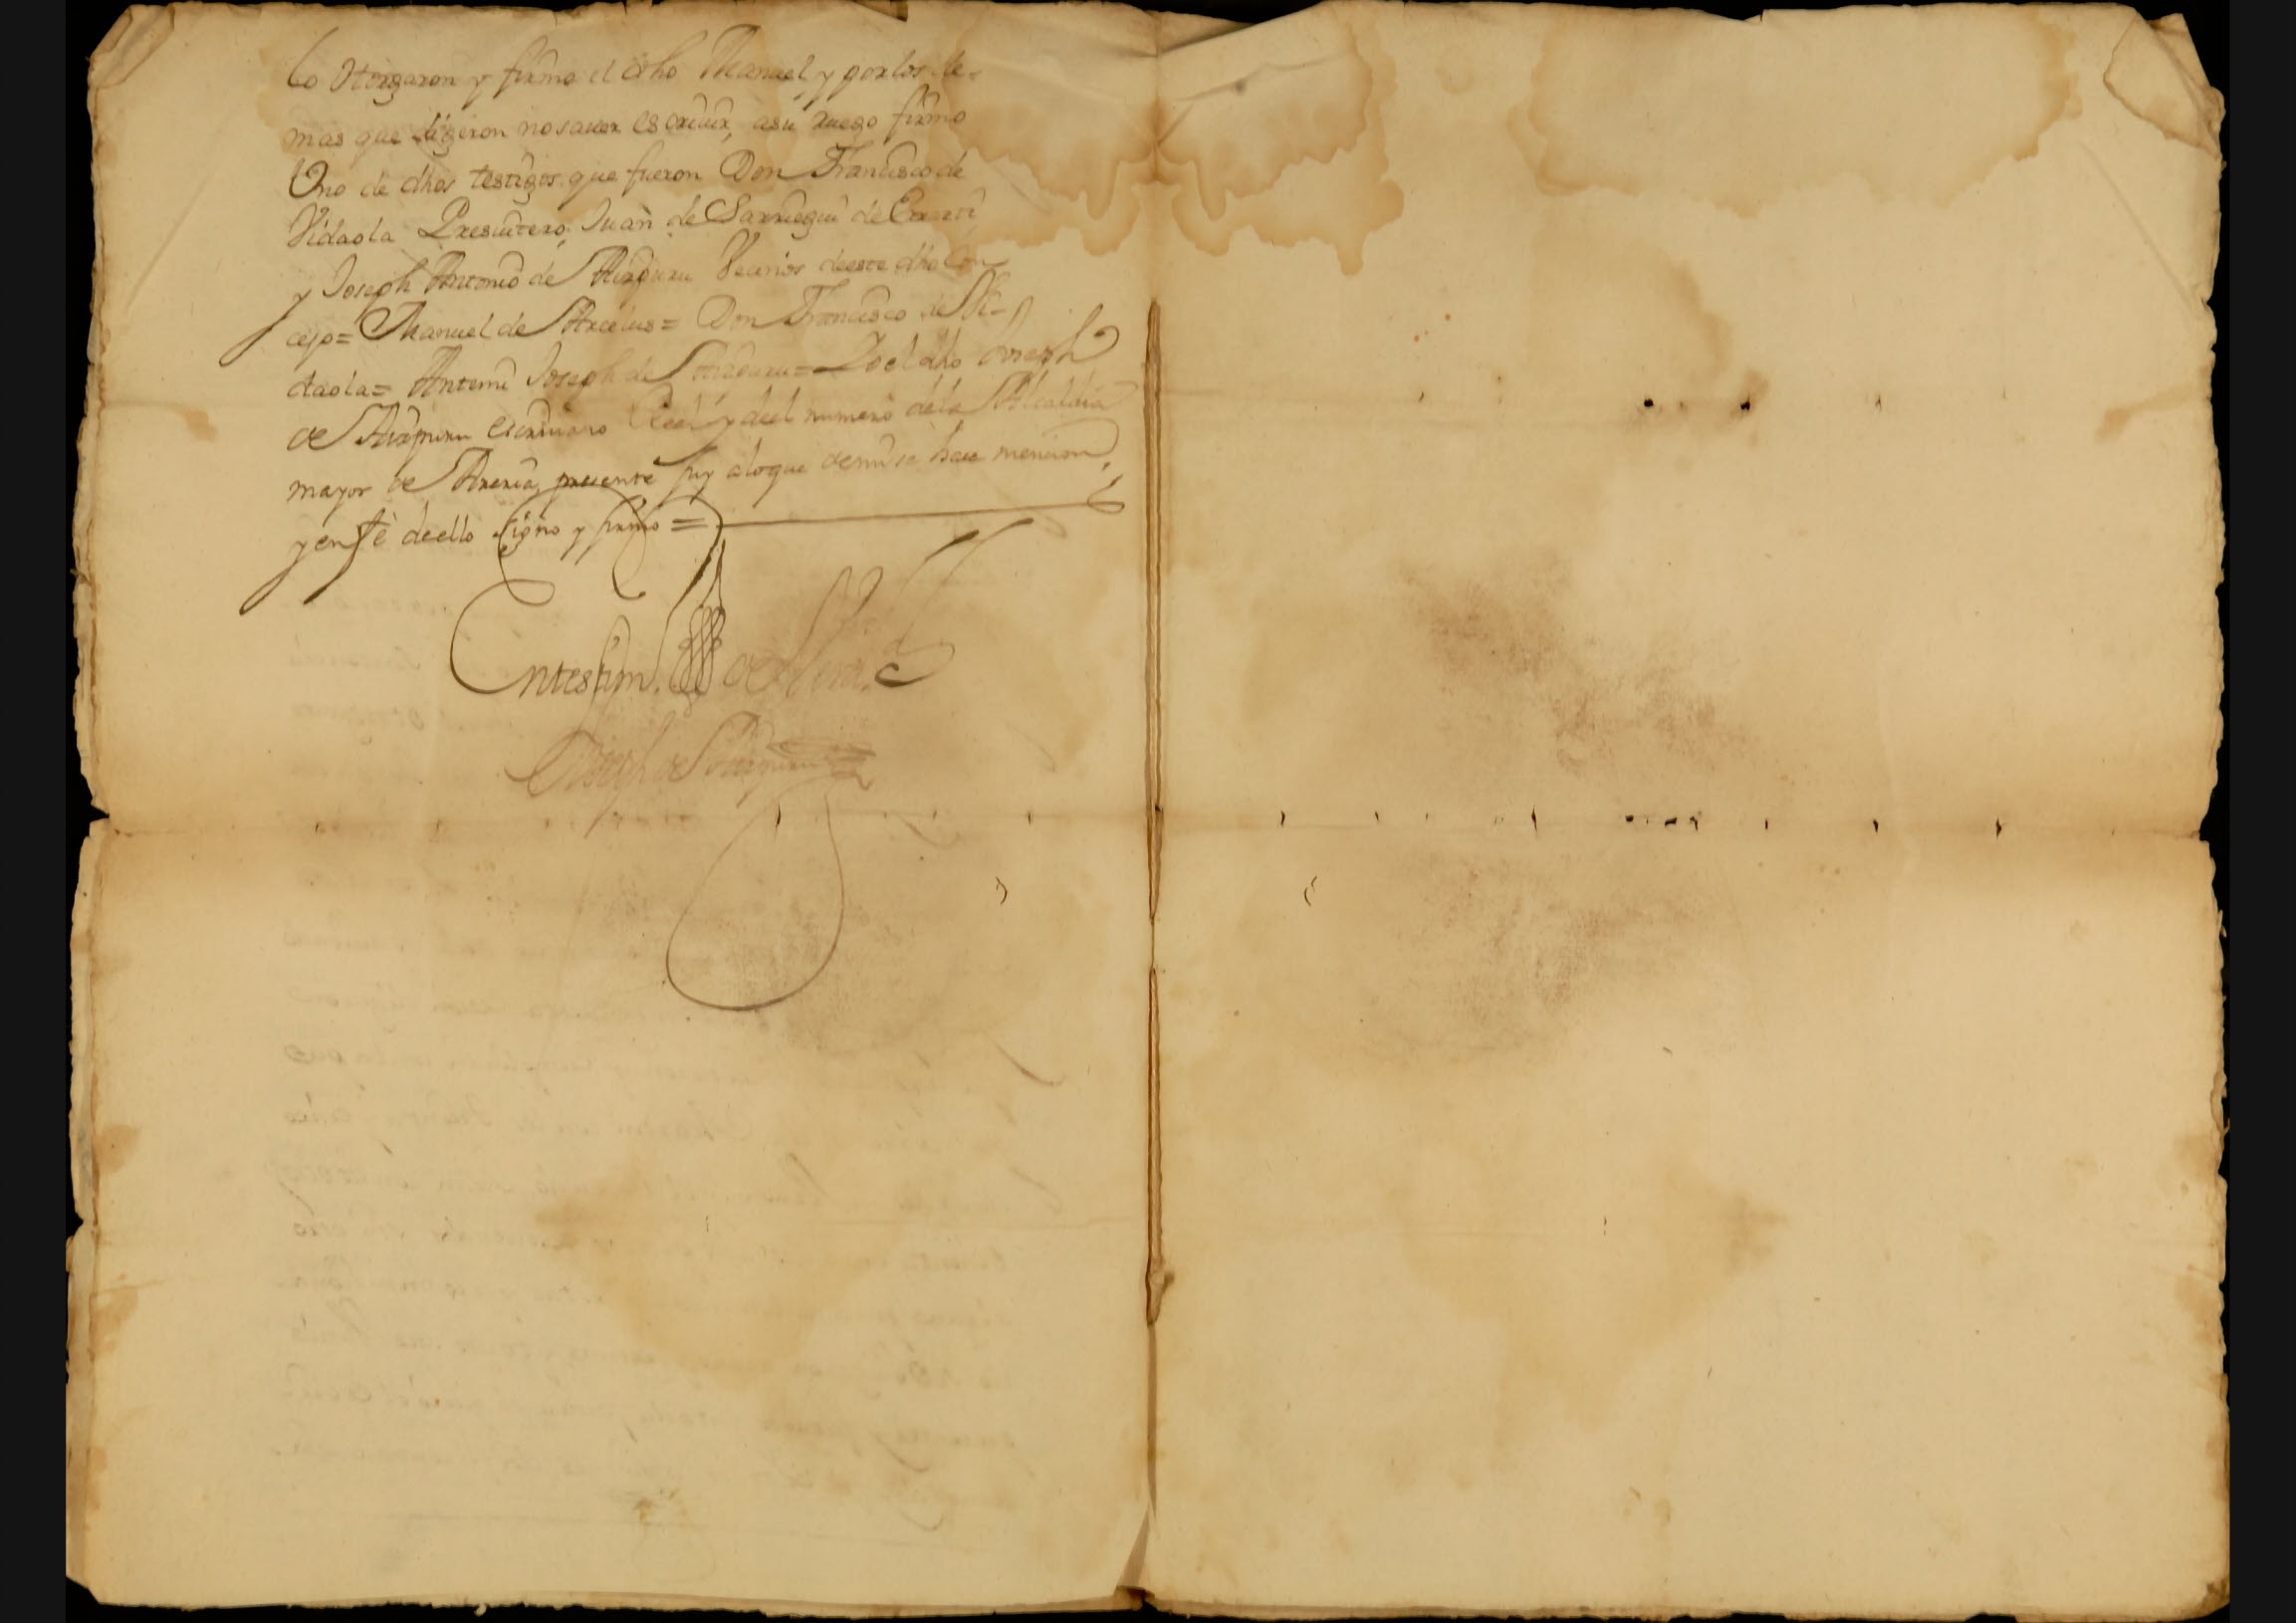 lo otorgaron y firmo el dho Manuel, y por los de-
mas que digeron no saver escriuir, a su ruego firmo
Uno de dhos testigos que fueron Don Francisco de
Vidaola Presuitero, Juan de Sarriegui de
y Joseph Antonio de Aizpuru Vecinos de este dho Con
cejo = Manuel de Arcelus = Don Francisco de Vi-
daola = Antemi Joseph de Aizpuru = Yo el dho Joseph
de Aizpuru escriuano Real y del numero de la Alcaldia
mayor de Areria presente fuy a lo que de mi se hace mencion,
y en fè de ello signo y firmo =
En testim. de
Joseph de Aizpuru